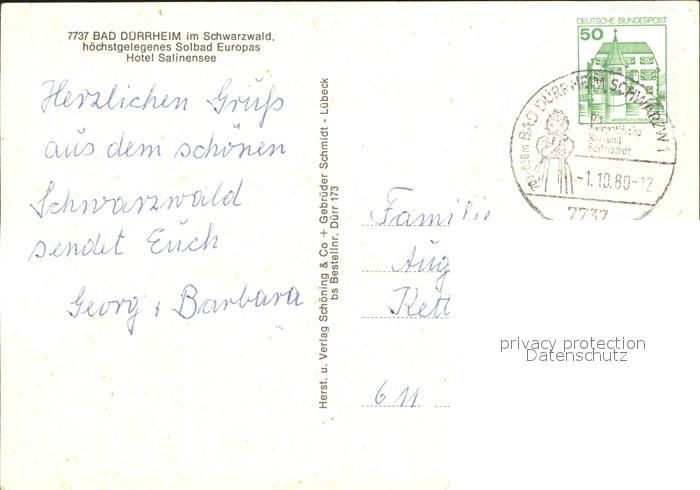 7737 BAD DÜRRHEIM im Schwarzwald,
höchstgelegenes Solbad Europas
Hotel Salinensee
Herzlichen Gruß
aus dem schönen
Schwarzwald
sendet Euch
Georg + Barbara
Herst. u. Verlag Schöning & Co + Gebrüder Schmidt - Lübeck
bs Bestellnr. Dürr 173
DEUTSCHE BUNDESPOST
50
BAD DÜRRHEIM, SCHWARZW 1
-1.10.80-12
7737
Familie
Aug
Kett
611
privacy protection
Datenschutz